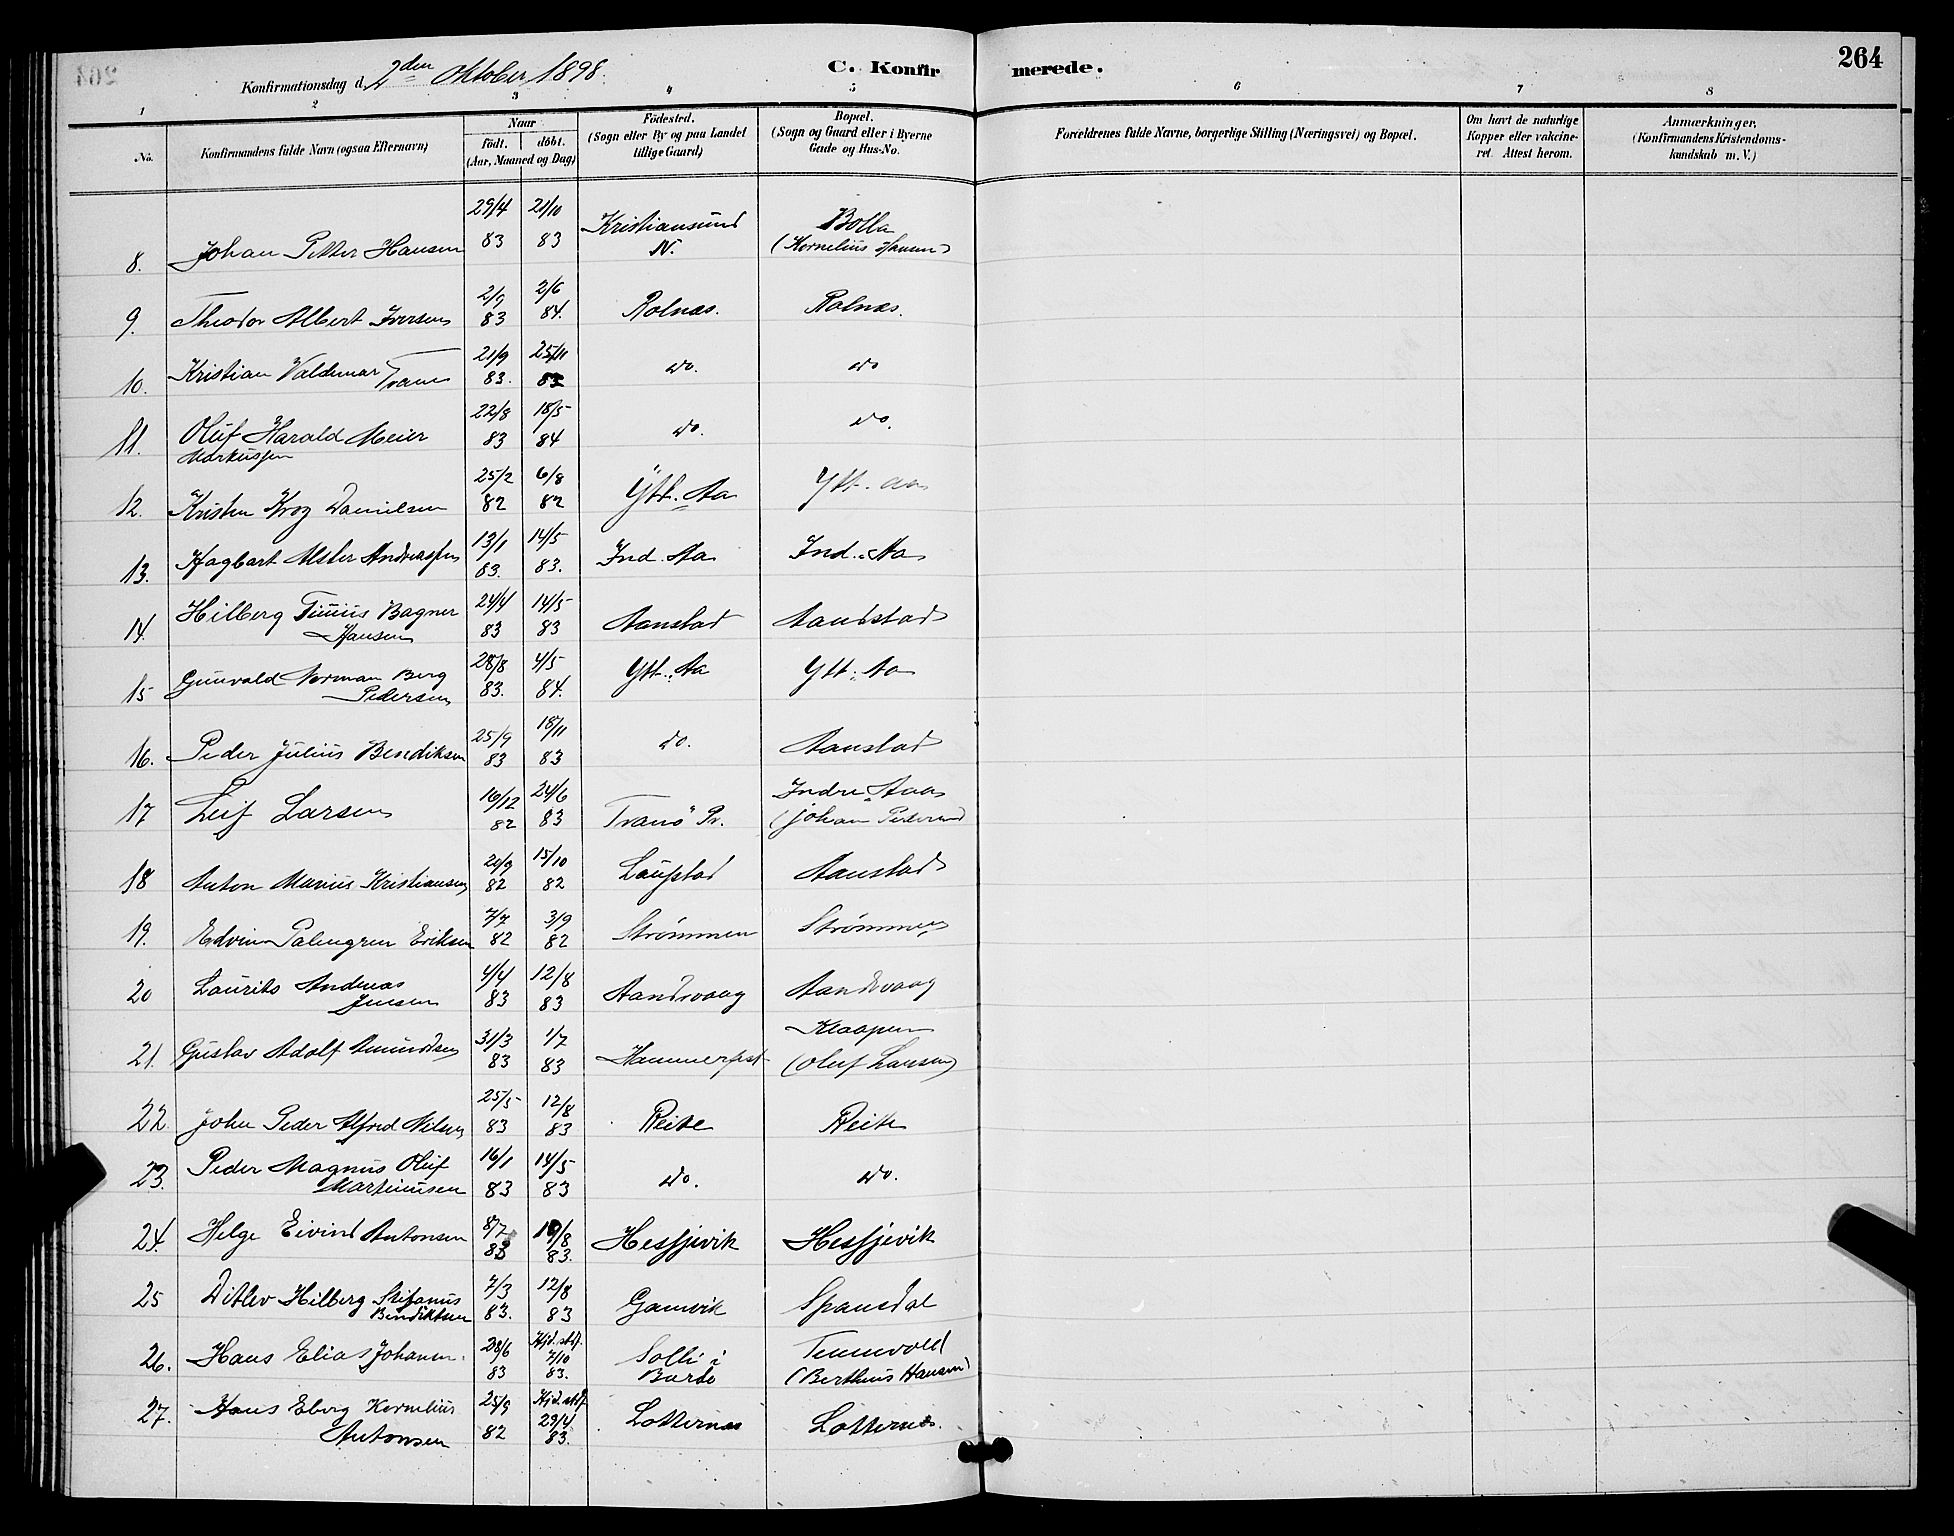 264
Konfirmationsdag d. 2den Oktober 1898.
C. Konfirmerede.
1 2 3 4 5 6 7 8
No.
Konfirmandens fulde Navn (ogsaa Efternavn)
Naar
födt. döbt.
(Aar, Maaned og Dag)
Födested.
(Sogn eller By og paa Landet
tillige Gaard)
Bopæl.
(Sogn og Gaard eller i Byerne
Gade og Hus-No.
Forældrenes fulde Navne, borgerlige Stilling (Næringsvei) og Bopæl.
Om havt de naturlige
Kopper eller vakcine-
ret. Attest herom.
Anmærkninger,
(Konfirmandens Kristendoms-
kundskab m. V.)
29/4 21/10 Kristiansund Bolla
8. Johan Petter Hansen 83 83 N. (Kornelius Hansen)
2/9 2/6
9. Theodor Albert Iversen 83 84. Rolnæs. Rolnæs.
21/9 25/11
10. Kristian Valdemar Trane 83. 83 do. do
22/8 18/5
11. Oluf Harald Meier 83 84 do. do.
Markussen
25/2 6/8
12. Kristen Krog Danielsen 82 82 Ytt. Aa Ytt. Aa
13/1 14/5
13. Hagbart Alster Andreassen 83. 83. Ind. Aa Ind. Aa
24/4 14/5
14. Hilberg Tinius Bagner 83 83 Aanstad Aandstad
Hansen
28/8 4/5
15 Gunvald Norman Berg 83. 84. Ytt. Aa Ytt. Aa
Pedersen
25/9 18/11
16. Peder Julius Bendiksen 83 83 do. Aanstad
16/12 24/6 Indre Aa
17 Leif Larsen 82 83 Tranö Pr. (Johan Pedersen)
20/9 15/10
18 Anton Marius Kristiansen 82 82 Laupstad Aanstad
7/7 3/9
19. Edvin Palmgren Eriksen 82 82 Strømmen Strømmen
4/4 12/8
20 Laurits Andreas 83 83 Aandvaag Aandvaag
Jensen
31/3 1/7 Klaapen
21. Gustav Adolf Amundsen 83 83 Hammerfest (Oluf Larsen)
25/5 12/8
22. John Peder Alfred Nilsen 83 83 Reite Reite
16/1 14/5
23. Peder Magnus Oluf 83 83 do. do.
Martinusen
8/7 19/8
24. Helge Eivind Antonsen 83 83. Hesfjevik Hesfjevik
7/3 12/8
25 Ditlev Hilberg Stefanus 83. 83 Gamvik Spansdal
Bendiktsen
28/6 Hjd. støf. 7/10 Solli i Tennevold
26. Hans Elias Johans. 83 83. Bardo (Berthius Hansen)
25/9 Hjd. støf.
27. Hans Eberg Kornelius 82 29/4 83. Lotternæs Lotternæs.
Antonsen